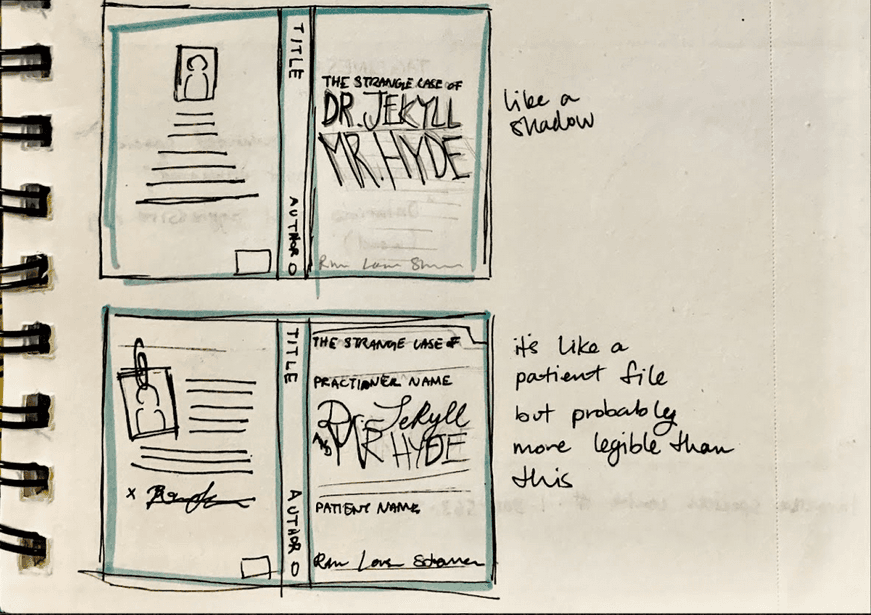 TITLE
AUTHOR
THE STRANGE CASE OF
DR. JEKYLL
MR. HYDE
like a
shadow
TITLE
AUTHOR
THE STRANGE CASE OF
PRACTIONER NAME
Dr. Jekyll
AND
MR HYDE
PATIENT NAME
x
it's like a
patient file
but probably
more legible than
this